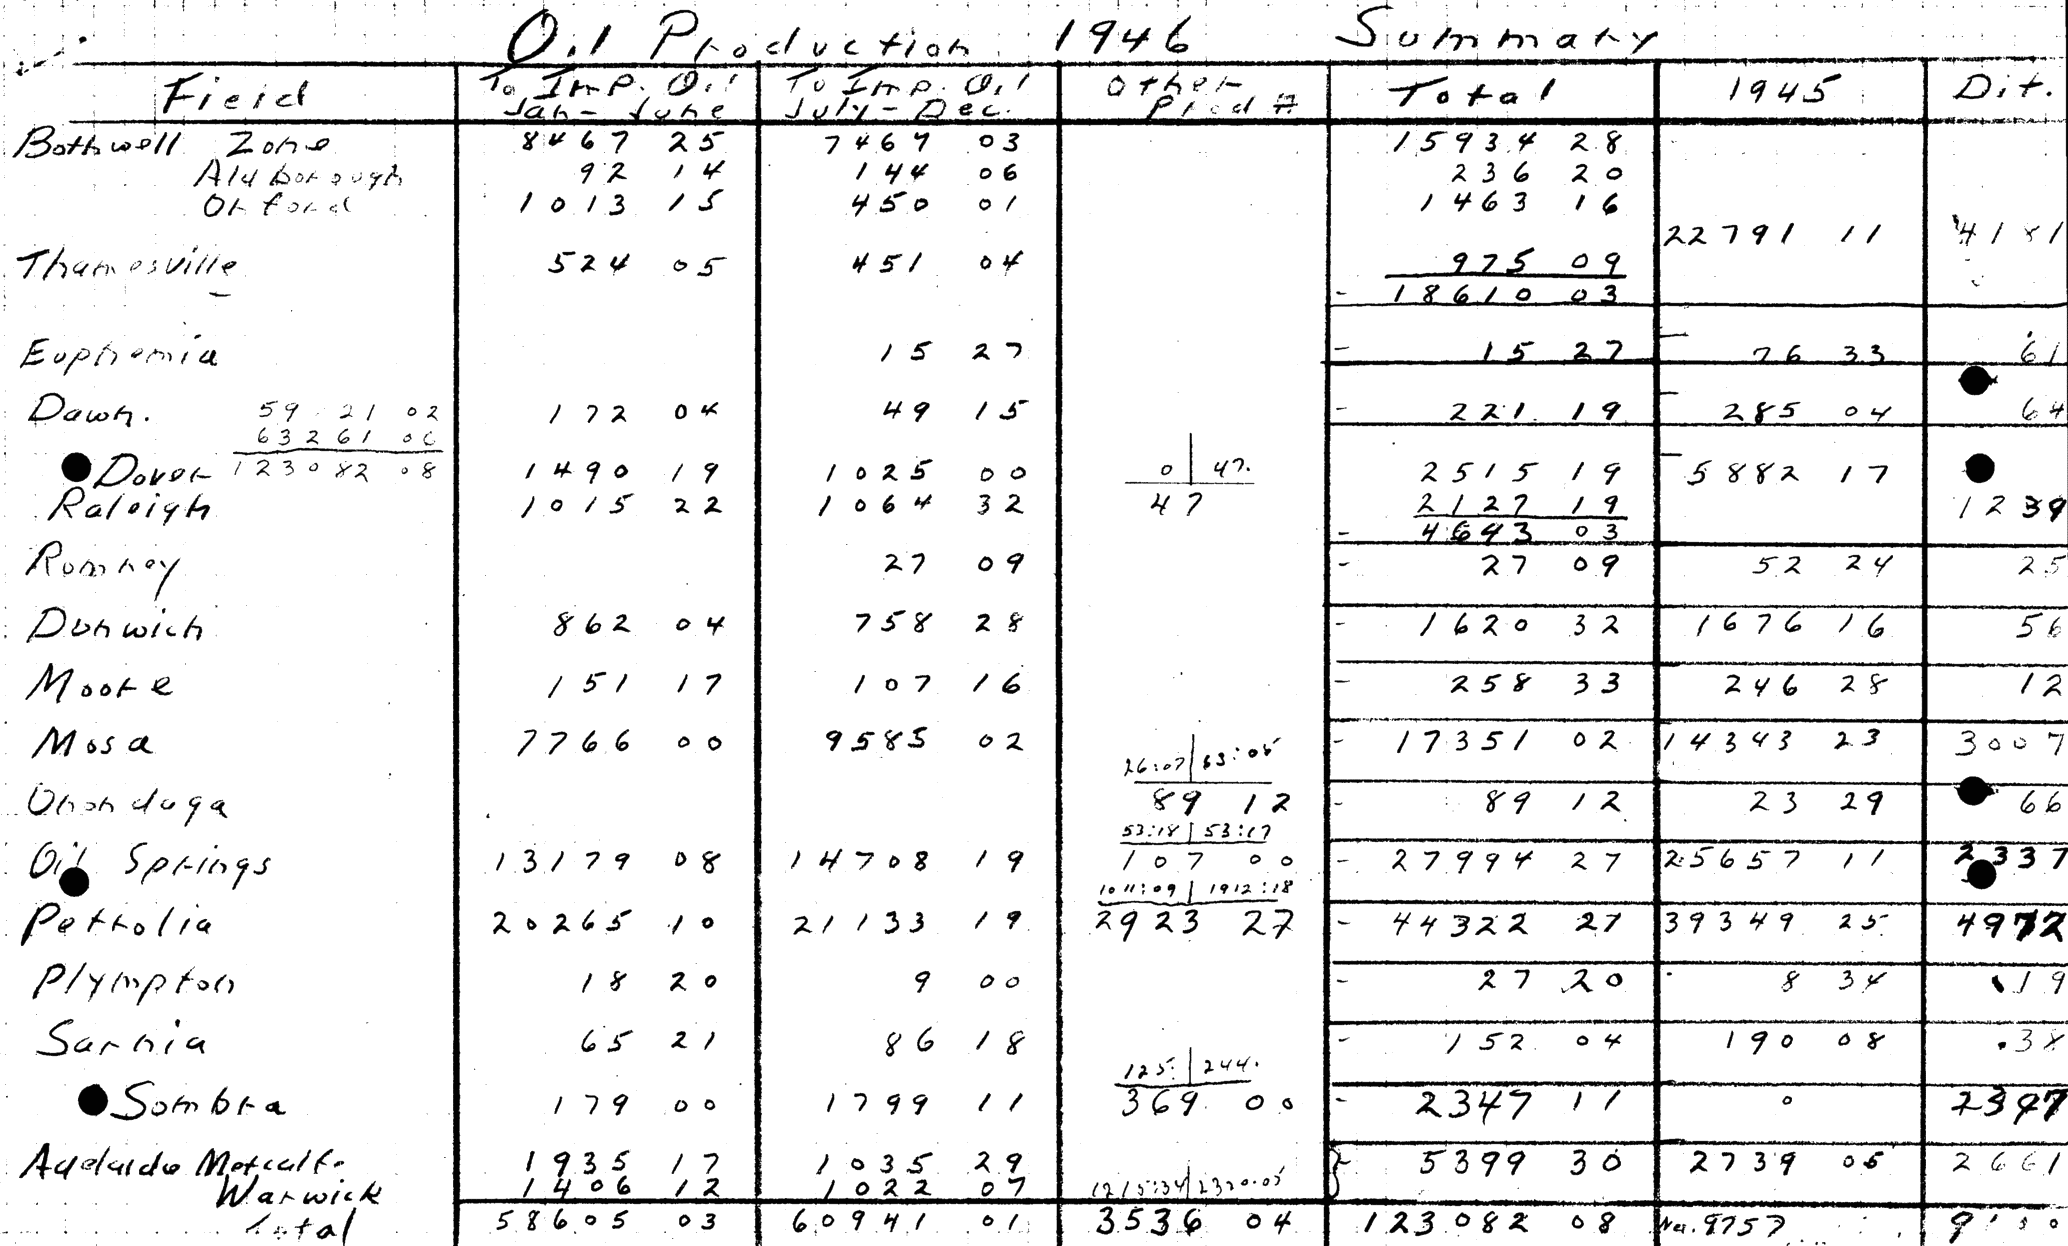 Oil Production 1946 Summary
Field To Imp. Oil Jan-June To Imp. Oil July-Dec. Other Prod'n Total 1945 Dif.
Bothwell Zone 8467 25 7467 03 15934 28
Aldborough 92 14 144 06 236 20
Orford 1013 15 450 01 1463 16
22791 11 4181
Thamesville 524 05 451 04 975 09
- 18610 03
Euphemia 15 27 - 15 27 76 33 61
Dawn. 59 21 02 172 04 49 15 - 221 19 285 04 64
63261 06
Dover 123082 08 1490 19 1025 00 0 | 47. 2515 19 5882 17
Raleigh 1015 22 1064 32 47 2127 19 1239
- 4643 03
Romney 27 09 - 27 09 52 24 25
Dunwich 862 04 758 28 - 1620 32 1676 16 56
Moore 151 17 107 16 - 258 33 246 28 12
Mosa 7766 00 9585 02 - 17351 02 14343 23 3007
26:07 | 63:05
Onondaga 89 12 - 89 12 23 29 66
53:18 | 53:17
Oil Springs 13179 08 14708 19 107 00 - 27994 27 25657 11 2337
1011:09 | 1912:18
Petrolia 20265 10 21133 19 2923 27 - 44322 27 39349 25 4972
Plympton 18 20 9 00 - 27 20 8 34 19
Sarnia 65 21 86 18 - 152 04 190 08 38
125: | 244.
Sombra 179 00 1799 11 369 00 - 2347 11 0 2347
Adelaide Metcalfe 1935 17 1035 29 - 5399 30 2739 05 2661
Warwick 1406 12 1022 07 1215:34 | 2320:05
Total 58605 03 60941 01 3536 04 123082 08 No. 9757